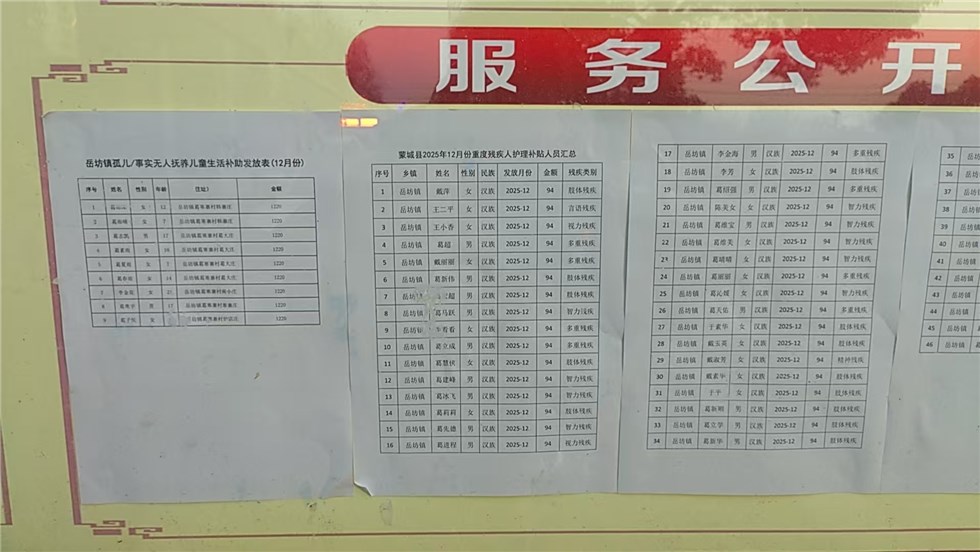 服务公开
岳坊镇孤儿/事实无人抚养儿童生活补助发放表(12月份)
序号 姓名 性别 年龄 住址 金额
1 女 12 1220
2 女 7 1220
3 男 17 1220
4 女 1220
5 女 1220
6 女 1220
7 女 1220
8 男 1220
9 女 1220
蒙城县2025年12月份重度残疾人护理补贴人员汇总
序号 乡镇 姓名 性别 民族 发放月份 金额 残疾类别
1 岳坊镇 戴萍 女 汉族 2025-12 94 肢体残疾
2 岳坊镇 王二平 女 汉族 2025-12 94 言语残疾
3 岳坊镇 王小香 女 汉族 2025-12 94 视力残疾
4 岳坊镇 葛超 男 汉族 2025-12 94 多重残疾
5 岳坊镇 戴丽丽 女 汉族 2025-12 94 多重残疾
6 岳坊镇 葛新伟 男 汉族 2025-12 94 肢体残疾
7 岳坊镇 超 男 汉族 2025-12 94 肢体残疾
8 岳坊镇 葛马跃 男 汉族 2025-12 94 智力残疾
9 岳坊镇 女 汉族 2025-12 94 多重残疾
10 岳坊镇 葛立成 男 汉族 2025-12 94 多重残疾
11 岳坊镇 葛慧侠 女 汉族 2025-12 94 肢体残疾
12 岳坊镇 葛建峰 男 汉族 2025-12 94 智力残疾
13 岳坊镇 葛冰飞 男 汉族 2025-12 94 智力残疾
14 岳坊镇 葛莉莉 女 汉族 2025-12 94 肢体残疾
15 岳坊镇 葛先德 男 汉族 2025-12 94 智力残疾
16 岳坊镇 葛进程 男 汉族 2025-12 94 视力残疾
17 岳坊镇 李金海 男 汉族 2025-12 94 多重残疾
18 岳坊镇 李芳 女 汉族 2025-12 94 肢体残疾
19 岳坊镇 葛绍强 男 汉族 2025-12 94 多重残疾
20 岳坊镇 陈美女 女 汉族 2025-12 94 智力残疾
21 岳坊镇 葛维宝 男 汉族 2025-12 94 智力残疾
22 岳坊镇 葛维美 女 汉族 2025-12 94 智力残疾
23 岳坊镇 葛晴晴 女 汉族 2025-12 94 智力残疾
24 岳坊镇 葛丽丽 女 汉族 2025-12 94 多重残疾
25 岳坊镇 葛沁媛 女 汉族 2025-12 94 智力残疾
26 岳坊镇 葛天佑 男 汉族 2025-12 94 多重残疾
27 岳坊镇 于素华 女 汉族 2025-12 94 肢体残疾
28 岳坊镇 戴玉英 女 汉族 2025-12 94 肢体残疾
29 岳坊镇 戴淑芳 女 汉族 2025-12 94 精神残疾
30 岳坊镇 戴素华 女 汉族 2025-12 94 肢体残疾
31 岳坊镇 于平 女 汉族 2025-12 94 肢体残疾
32 岳坊镇 葛新明 男 汉族 2025-12 94 肢体残疾
33 岳坊镇 葛立学 男 汉族 2025-12 94 肢体残疾
34 岳坊镇 葛新华 男 汉族 2025-12 94 肢体残疾
35 岳
36 岳坊
37 岳坊
38 岳坊镇
39 岳坊镇
40 岳坊镇
41 岳坊镇
42 岳坊镇
43 岳坊镇
44 岳坊镇
45 岳坊镇
46 岳坊镇